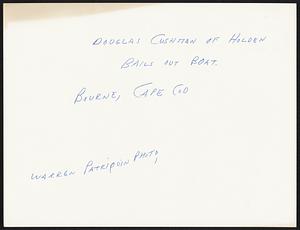 DOUGLAS CUSHMAN OF HOLDEN
BAILS OUT BOAT.
BOURNE, CAPE COD
WARREN PATRIQUIN PHOTO